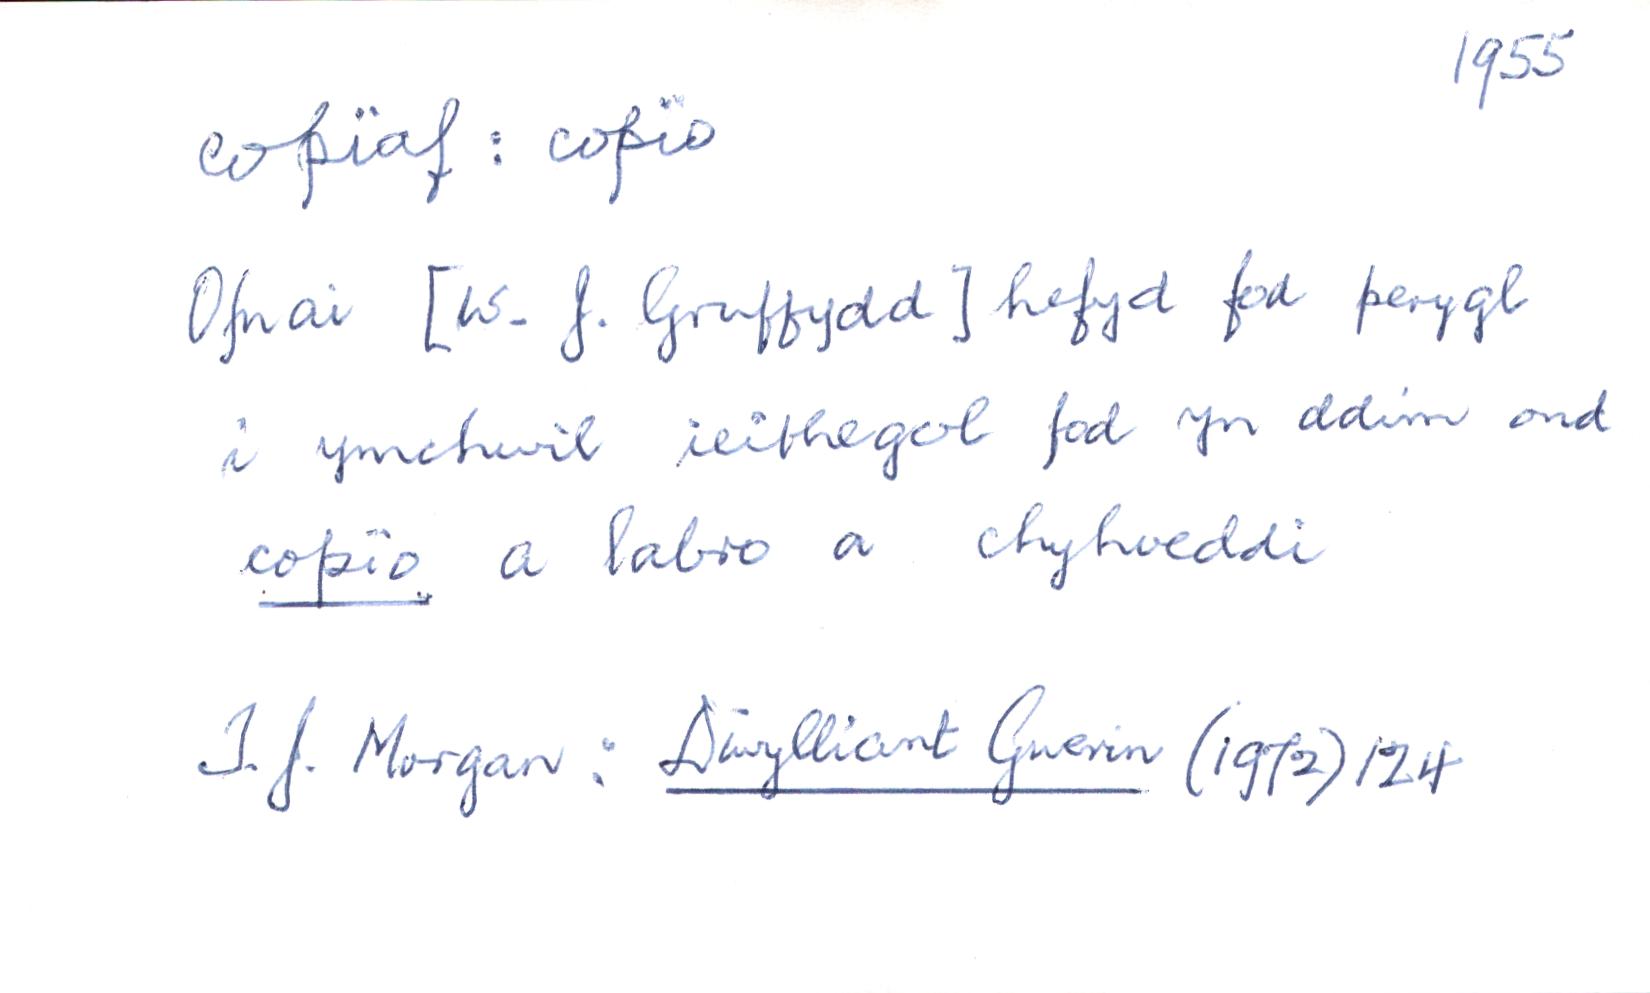 1955
copïaf : copïo
Ofnai [W. J. Gruffydd] hefyd fod perygl
i ymchwil ieithegol fod yn ddim ond
copïo a labro a chyhoeddi
T. J. Morgan : Diwylliant Gwerin (1972) 124